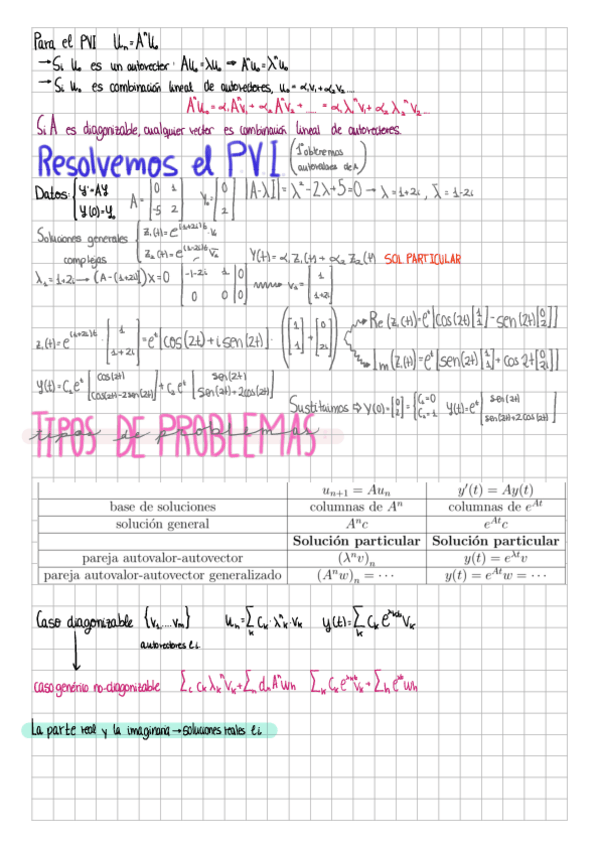 Para el PVI Uₙ=AⁿU₀
→Si U₀ es un autovector: AU₀=λU₀ → AⁿU₀=λⁿU₀
→Si U₀ es combinación lineal de autovectores, U₀=α₁V₁+α₂V₂...
AⁿU₀=α₁AⁿV₁+α₂AⁿV₂+.... = α₁λ₁ⁿV₁+α₂λ₂ⁿV₂...
Si A es diagonalizable, cualquier vector es combinación lineal de autovectores.
Resolvemos el PVI (1º obtenemos autovalores de A)
Datos: {Y'=AY, Y(0)=Y₀ A=[0 1; -5 2] Y₀=[0; 2] |A-λI|=λ²-2λ+5=0→ λ=1+2i, λ̄=1-2i
Soluciones generales complejas {Z₁(t)=e^(1+2i)t·V₀, Z₂(t)=e^(1-2i)t·V̄₀ Y(t)=α₁Z₁(t)+α₂Z₂(t) SOL PARTICULAR
λ₁=1+2i→(A-(1+2i)I)X=0 [-1-2i 1 |0; 0 0 |0] → V₀=[1; 1+2i]
Z₁(t)=e^(1+2i)t·[1; 1+2i]=eᵗ[cos(2t)+i sen(2t)]·([1; 1]+[0; 2i]) → Re(Z₁(t))=eᵗ[cos(2t)[1; 1]-sen(2t)[0; 2]]
Im(Z₁(t))=eᵗ[sen(2t)[1; 1]+cos2t[0; 2]]
Y(t)=C₁eᵗ[cos(2t); cos(2t)-2sen(2t)]+C₂eᵗ[sen(2t); sen(2t)+2cos(2t)]
Sustituimos ⇒ Y(0)=[0; 2]={C₁=0, C₂=1 Y(t)=eᵗ[sen(2t); sen(2t)+2cos(2t)]
TIPOS DE PROBLEMAS
tipos de problemas
uₙ₊₁ = Auₙ y′(t) = Ay(t)
base de soluciones columnas de Aⁿ columnas de e^At
solución general Aⁿc e^At c
Solución particular Solución particular
pareja autovalor-autovector (λⁿv)ₙ y(t) = e^λt v
pareja autovalor-autovector generalizado (Aⁿw)ₙ = ··· y(t) = e^At w = ···
Caso diagonalizable {V₁...Vₘ} Uₙ=∑ₖ Cₖ·λₖⁿ·Vₖ Y(t)=∑ₖ Cₖe^λₖt Vₖ
autovectores l.i
caso genérico no-diagonalizable
La parte real y la imaginaria→soluciones reales l.i.